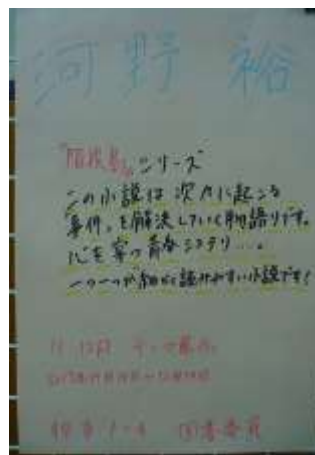 河野 裕
「階段島」シリーズ
この小説は次々に起こる
「事件」を解決していく物語りです。
心を穿つ青春ミステリ…。
一つ一つが細かく読みやすい小説です!
11・12月 テーマ展示
図書委員